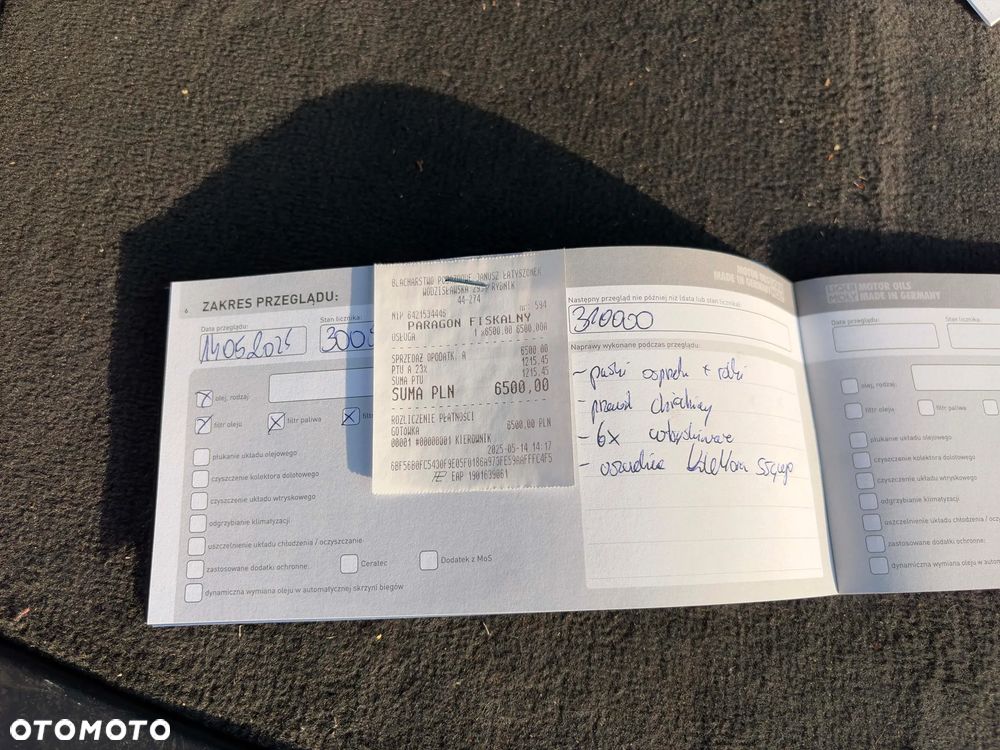 6 ZAKRES PRZEGLĄDU:
Data przeglądu:
Stan licznika:
14.05.2025
3000
olej, rodzaj:
filtr oleju
filtr paliwa
filtr
płukanie układu olejowego
czyszczenie kolektora dolotowego
czyszczenie układu wtryskowego
odgrzybianie klimatyzacji
uszczelnienie układu chłodzenia / oczyszczanie:
zastosowane dodatki ochronne:
Ceratec
Dodatek z MoS
dynamiczna wymiana oleju w automatycznej skrzyni biegów
BLACHARSTWO JANUSZ ŁATYSZONEK
WODZISŁAWSKA RYBNIK
44-274
NIP 6421534446
nr: 594
PARAGON FISKALNY
USŁUGA 1 x6500.00 6500,00A
SPRZEDAŻ OPODATK. A 6500.00
PTU A 23% 1215.45
SUMA PTU 1215.45
SUMA PLN 6500,00
ROZLICZENIE PŁATNOŚCI
GOTÓWKA 6500,00 PLN
00001 #00000001 KIEROWNIK
2025-05-14 14:17
EAP 1901639061
MOTOR OILS
MADE IN GERMANY
Następny przegląd nie później niż (data lub stan licznika):
310000
Naprawy wykonane podczas przeglądu:
- paski osprzętu + rolki
- przewód
- 6x
- kolektora ssącego
LIQUI MOLY
MOTOR OILS
MADE IN GERMANY
ZAKRES PRZEGLĄDU:
Data przeglądu:
Stan licznika:
olej, rodzaj:
filtr oleju
filtr paliwa
płukanie układu olejowego
czyszczenie kolektora dolotowego
czyszczenie układu wtryskowego
odgrzybianie klimatyzacji
uszczelnienie układu chłodzenia / o
zastosowane dodatki ochronne:
dynamiczna wymiana oleju w autom
OTOMOTO